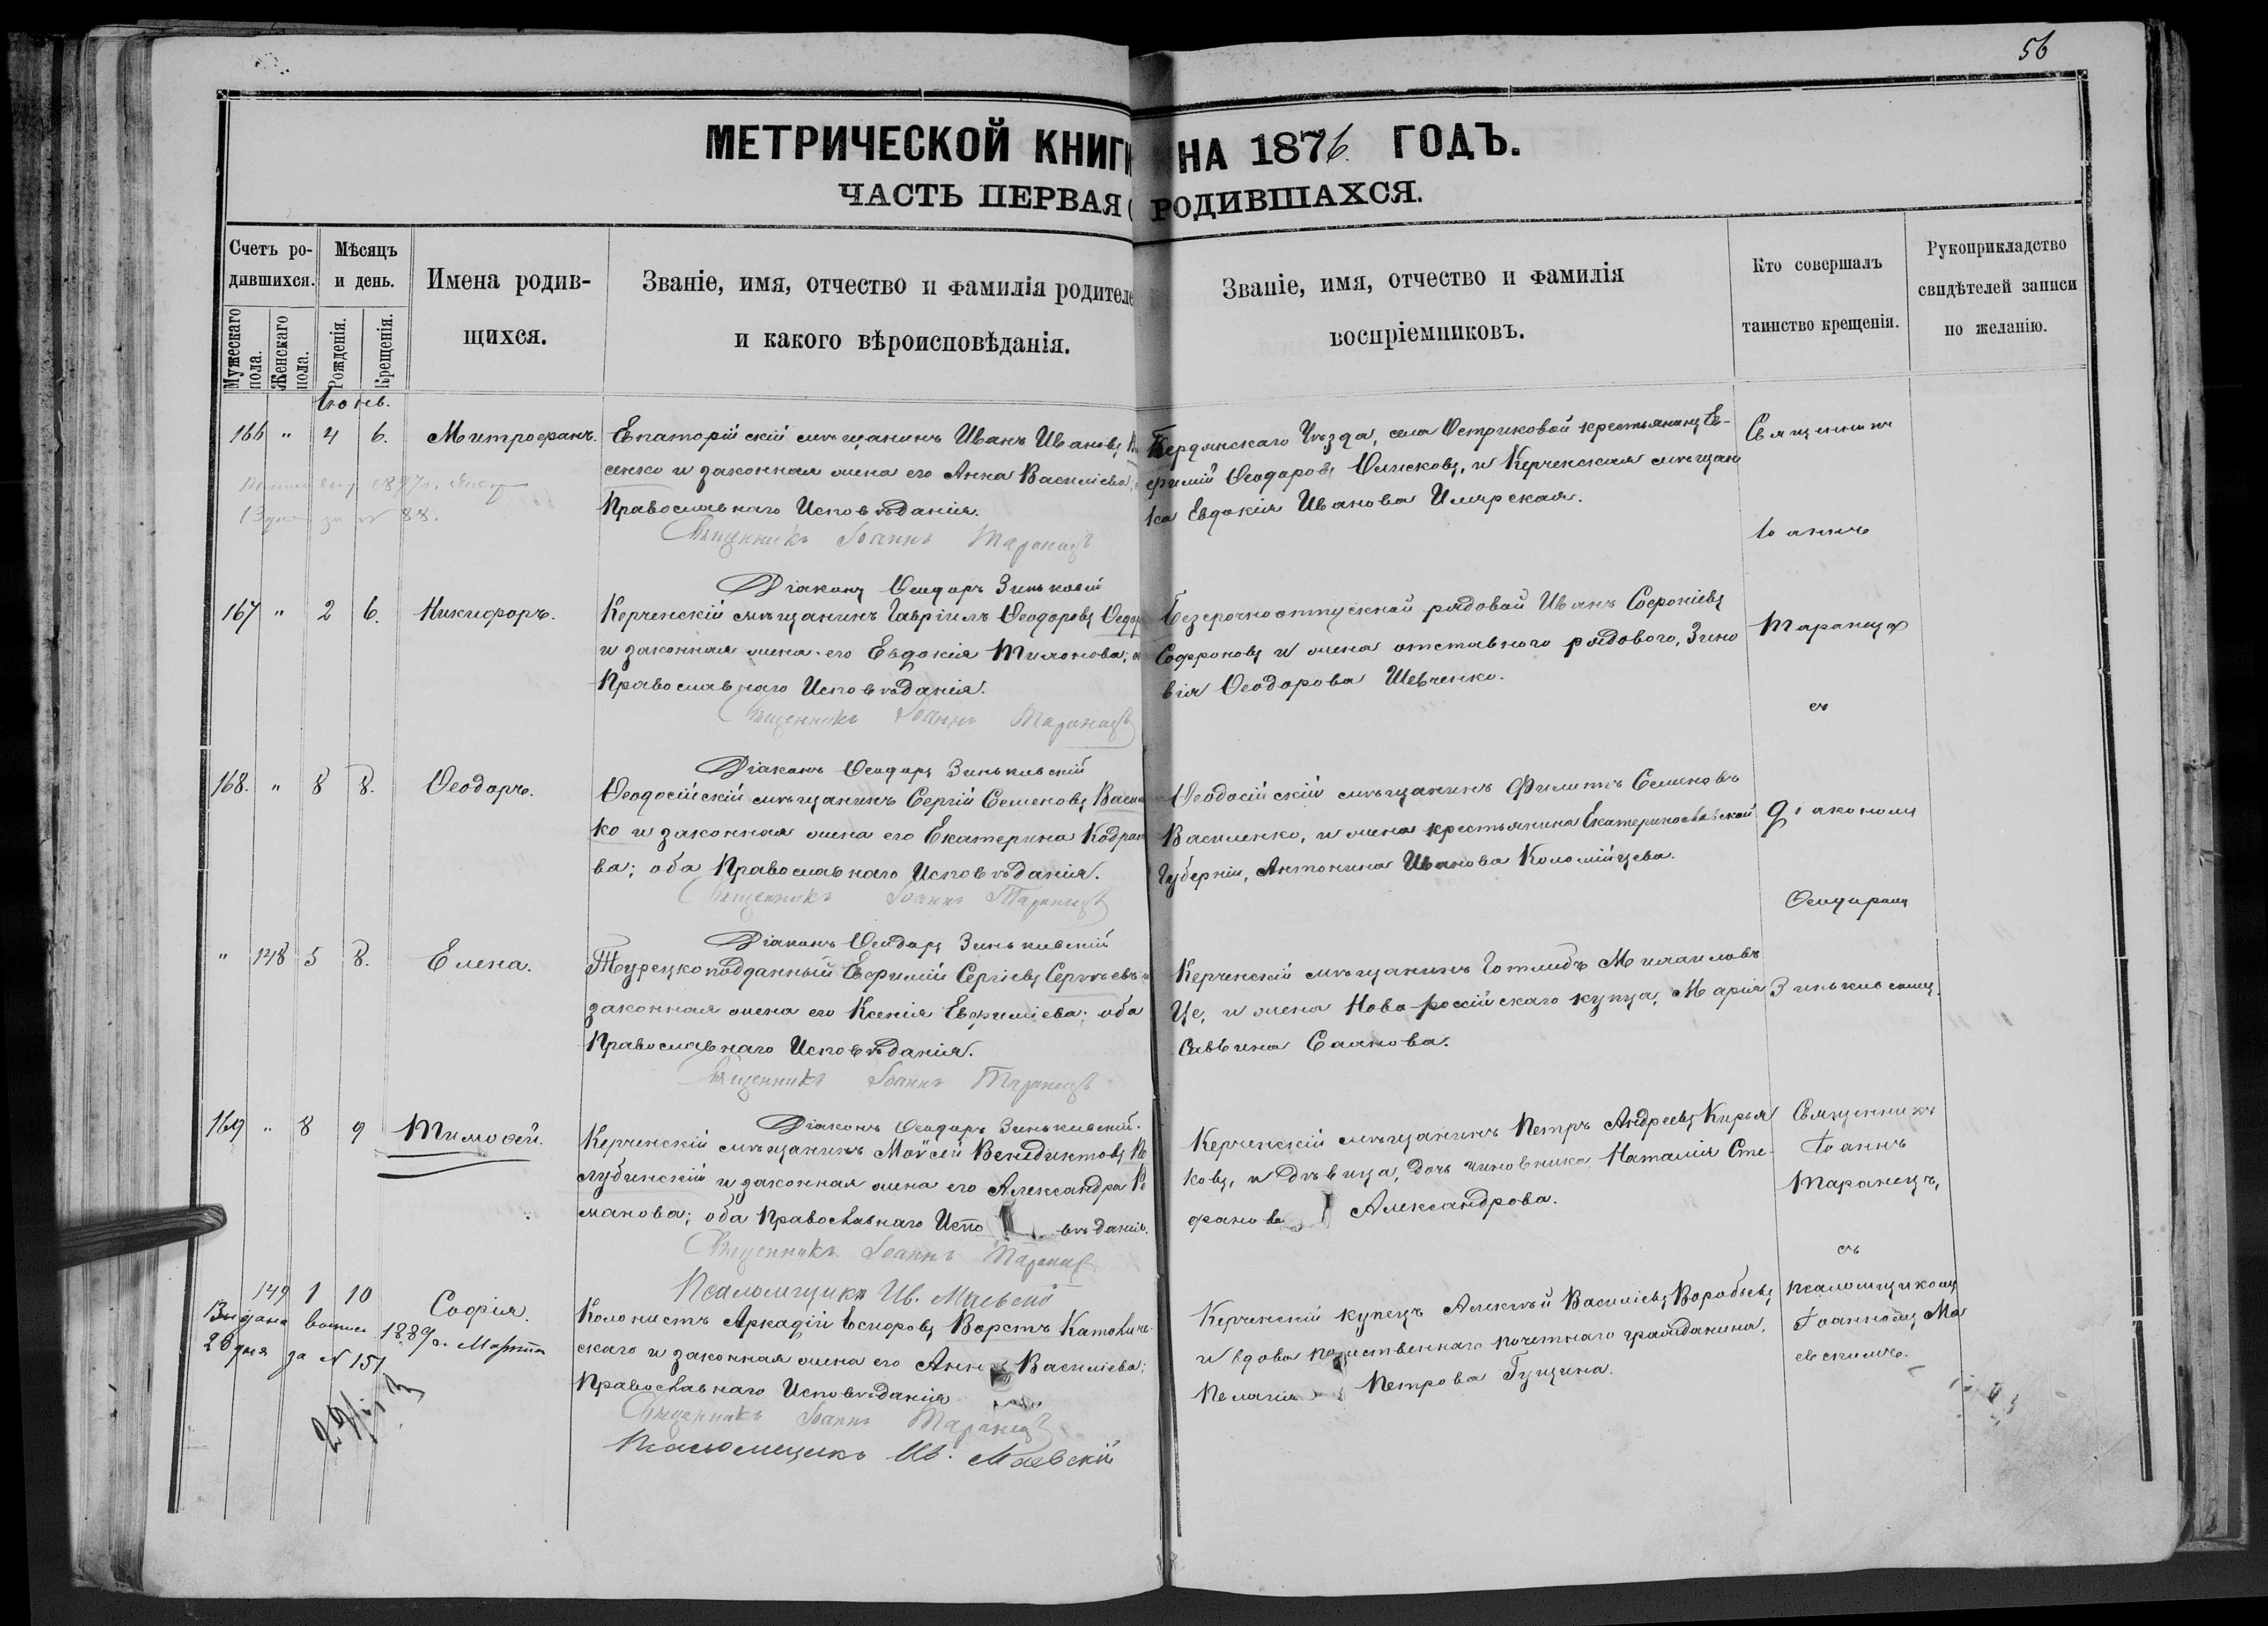 56
МЕТРИЧЕСКОЙ КНИГИ НА 1876. ГОДЪ.
ЧАСТЬ ПЕРВАЯ РОДИВШАХСЯ.
Счетъ ро-
дившихся.
Мужескаго пола.
Женскаго пола.
Мѣсяцъ
и день.
Рожденія.
Крещенія.
Имена родив-
щихся.
Званіе, имя, отчество и фамилія родителе
и какого вѣроисповѣданія.
Званіе, имя, отчество и фамилія
воспріемниковъ.
Кто совершалъ
таинство крещенія.
Рукоприкладство
свидѣтелей записи
по желанію.
Іюнь.
166 " 4 6. Митрофанъ.
Евпаторійскій мѣщанинъ Иванъ Ивановъ
сенко и законная жена его Анна Василіева;
Православнаго Исповѣданія.
Священникъ Іоаннъ Таранецъ
Діаконъ Ѳеодоръ Зиньковскій
Бердянскаго Уѣзда, села Остриковой крестьянинъ Ев-
фимій Ѳеодоровъ, и Керченская мѣщан
ка Евдокія Иванова
Священникъ
Іоаннъ
Таранецъ
съ
діакономъ
Ѳеодоромъ
Зиньковскимъ.
13 дня за № 88.
167 " 2 6. Никифоръ.
Керченскій мѣщанинъ Гавріилъ Ѳеодоровъ Ѳедор
и законная жена его Евдокія Тимонова;
Православнаго Исповѣданія.
Священникъ Іоаннъ Таранецъ
Діаконъ Ѳеодоръ Зиньковскій
Безсрочноотпускной рядовой Иванъ Софроніевъ
Софроновъ и жена отставного рядового, Зино
вія Ѳеодорова Шевченко.
168. " 8 8. Ѳеодоръ.
Ѳеодосійскій мѣщанинъ Сергій Семеновъ Васил
ко и законная жена его Екатерина Кодрат
ва; оба Православнаго Исповѣданія.
Священникъ Іоаннъ Таранецъ
Діаконъ Ѳеодоръ Зиньковскій
Ѳеодосійскій мѣщанинъ Филиппъ Семеновъ
Василенко, и жена крестьянина Екатеринославской
Губерніи, Антонина Иванова Коломійцева.
" 148 5 8. Елена.
Турецкоподданный Евфимій Сергіевъ Сергѣевъ и
законная жена его Ксенія Евфиміева; оба
Православнаго Исповѣданія.
Священникъ Іоаннъ Таранецъ
Діаконъ Ѳеодоръ Зиньковскій.
Керченскій мѣщанинъ Готлибъ Михаиловъ
Це, и жена Ново-россійскаго купца, Марія
Саввина
169 " 8 9 Тимоѳей.
Керченскій мѣщанинъ Моѵсей Венедиктовъ
лубинскій и законная жена его Александра Ро
манова; оба Православнаго Испо вѣданія.
Священникъ Іоаннъ Таранецъ
Псаломщикъ Ив. Маевскій
Керченскій мѣщанинъ Петръ Андреевъ Кирья
ковъ, и дѣвица, дочь чиновника Наталія Сте-
фанова Александрова.
Священникъ
Іоаннъ
Таранецъ,
съ
псаломщикомъ
Іоанномъ Ма
евскимъ.
149 1 10 Софія.
Выдана выпись 1889 г. Марта
28 дня за № 151
Колонистъ Аркадій Іосифовъ Ворстъ Католиче-
скаго и законная жена его Анна Василіева;
Православнаго Исповѣданія
Священникъ Іоаннъ Таранецъ
Псаломщикъ Ив. Маевскій
Керченскій купецъ Алексѣй Василіевъ Воробьевъ
и вдова потомственнаго почетнаго гражданина,
Пелагія Петрова Гущина.